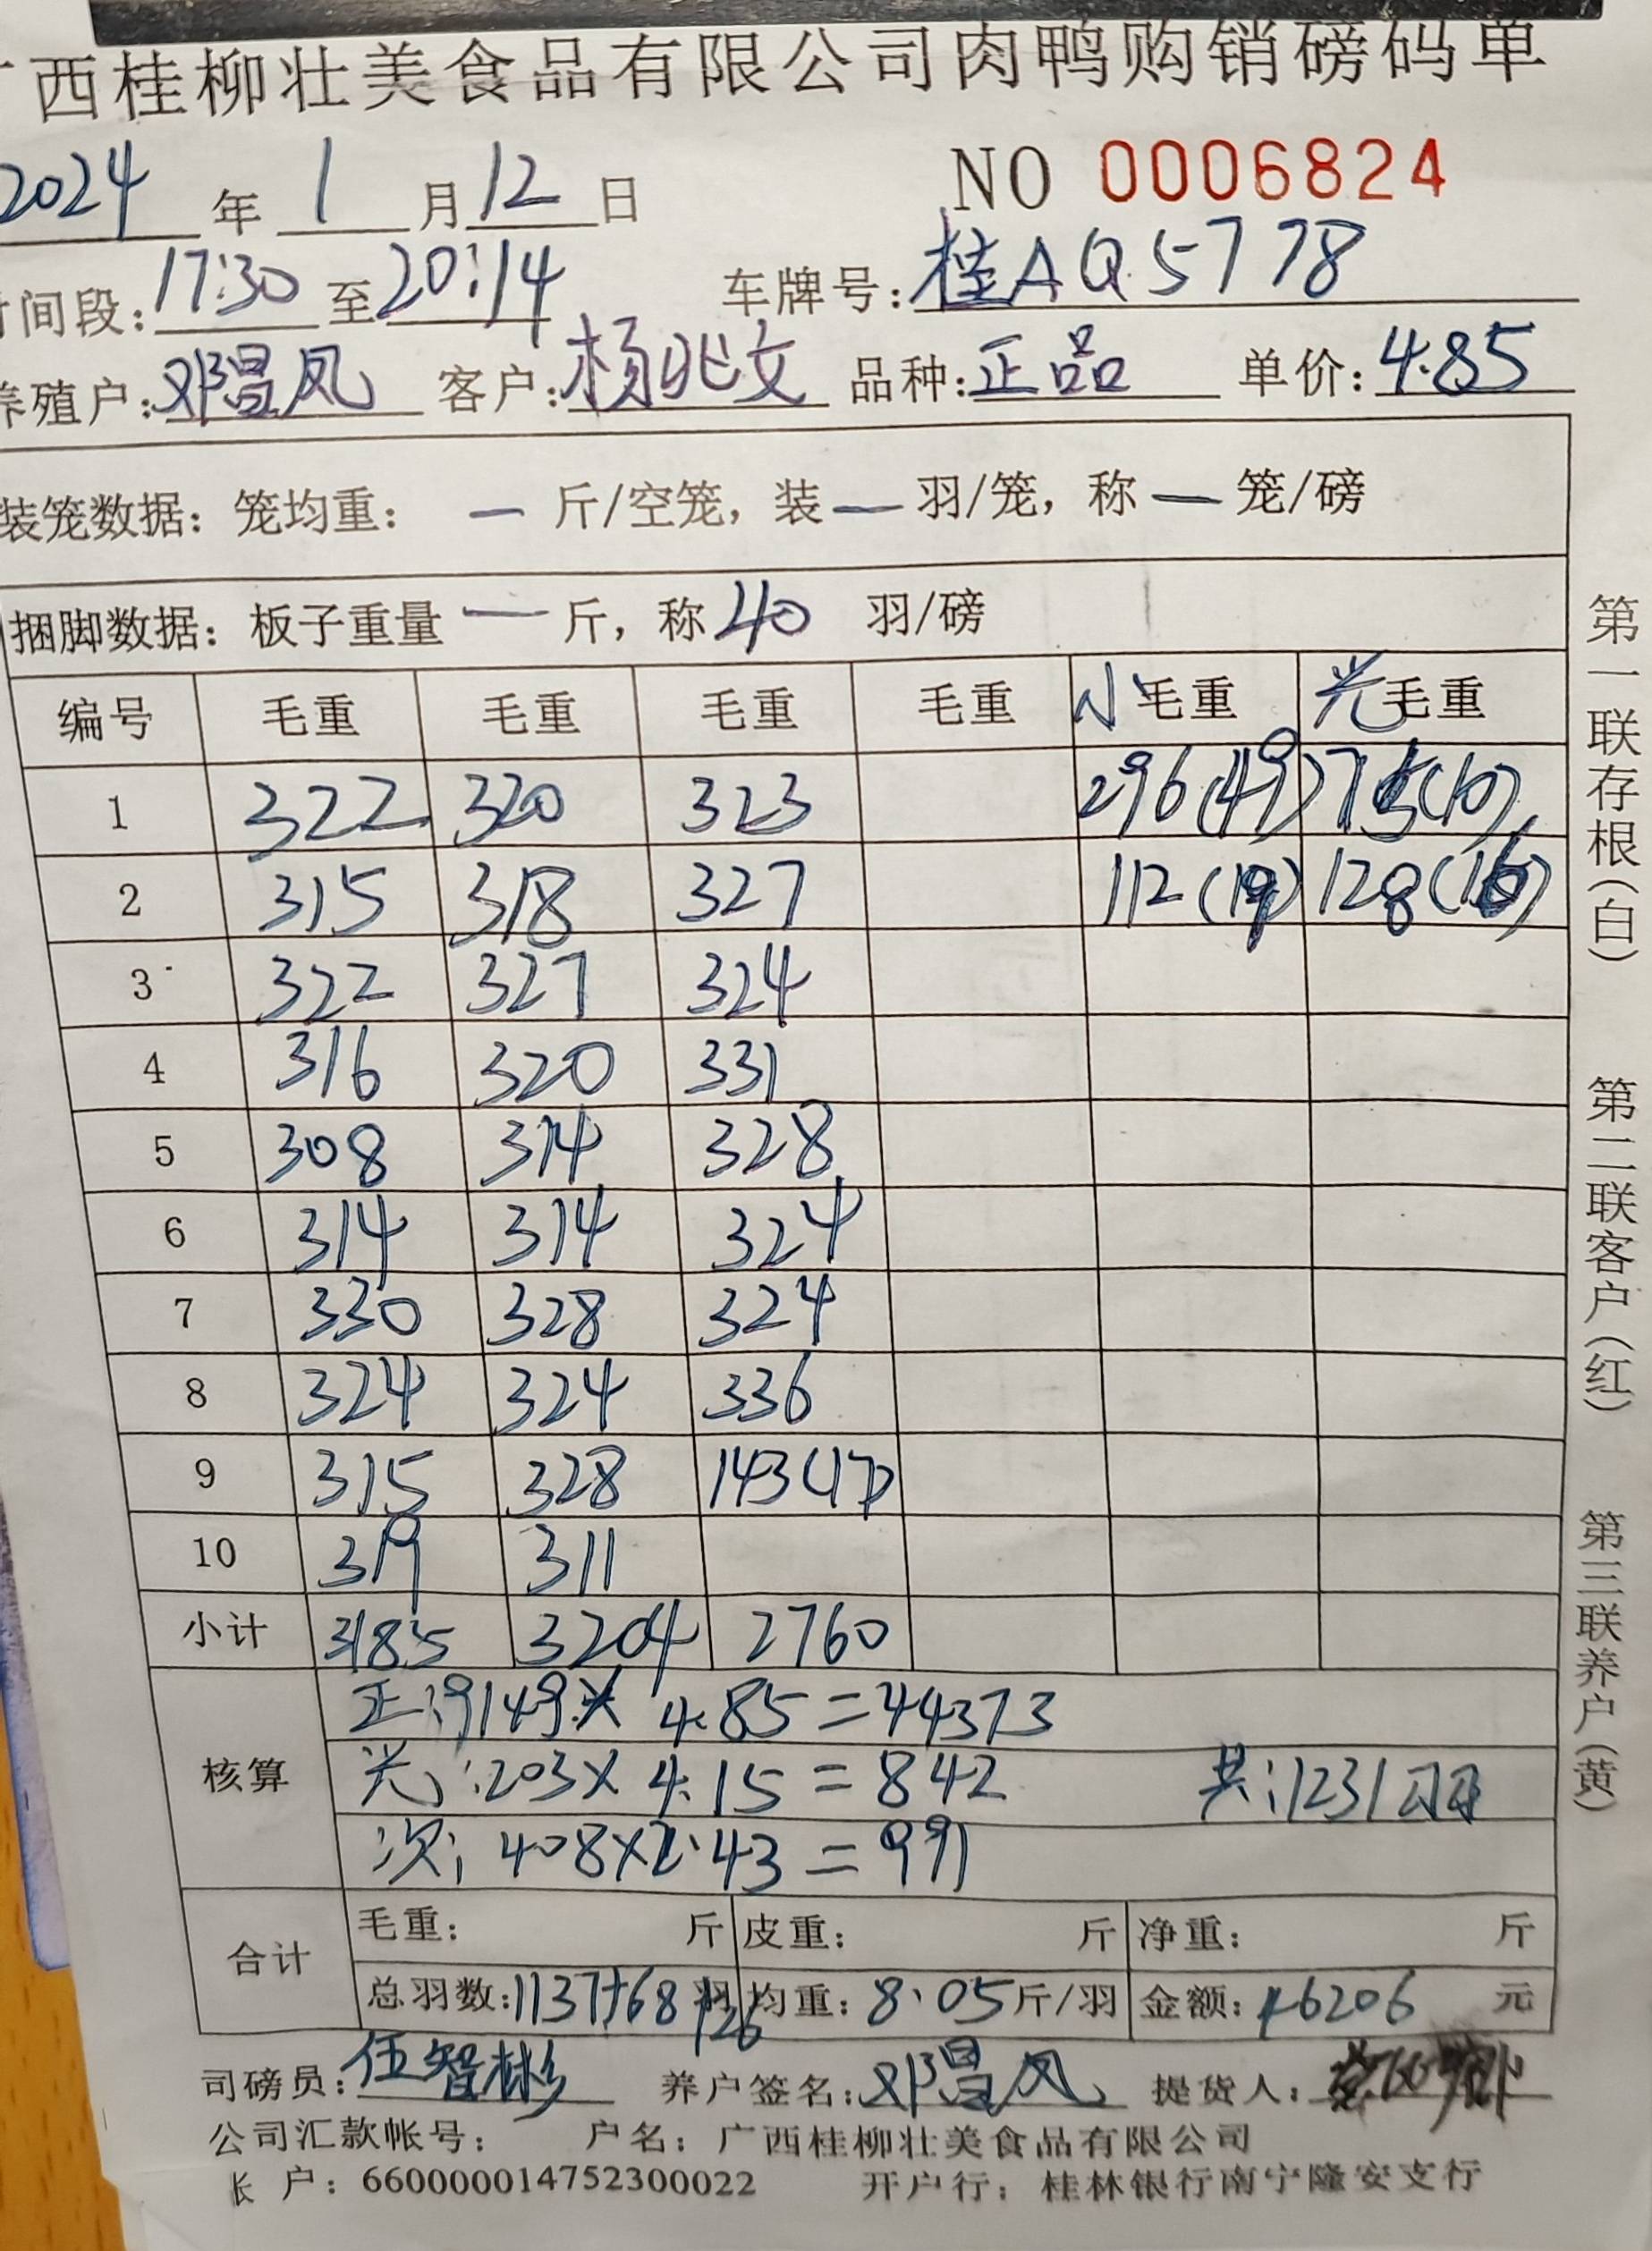 广西桂柳壮美食品有限公司肉鸭购销磅码单
2024 年 1 月 12 日 NO 0006824
时间段: 17:30 至 20:14 车牌号: 桂AQ5778
养殖户: 邓昌凤 客户: 杨兆文 品种: 正品 单价: 4.85
装笼数据: 笼均重: — 斤/空笼, 装 — 羽/笼, 称 — 笼/磅
捆脚数据: 板子重量 — 斤, 称 40 羽/磅
编号 毛重 毛重 毛重 毛重 小毛重 光毛重
1 322 320 323 296(49) 75(10)
2 315 318 327 112(19) 128(16)
3 322 327 324
4 316 320 331
5 308 314 328
6 314 314 324
7 330 328 324
8 324 324 336
9 315 328 143(17)
10 319 311
小计 3185 3204 2760
核算 正:9149× 4.85=44373
光:203×4.15=842 共:1231羽
次:408×2.43=991
合计 毛重: 斤 皮重: 斤 净重: 斤
总羽数:1137+68 羽 +26 均重: 8.05 斤/羽 金额: 46206 元
司磅员: 伍智彬 养户签名: 邓昌凤 提货人:
公司汇款帐号: 户名: 广西桂柳壮美食品有限公司
帐 户: 660000014752300022 开户行: 桂林银行南宁隆安支行
第一联存根(白)
第二联客户(红)
第三联养户(黄)